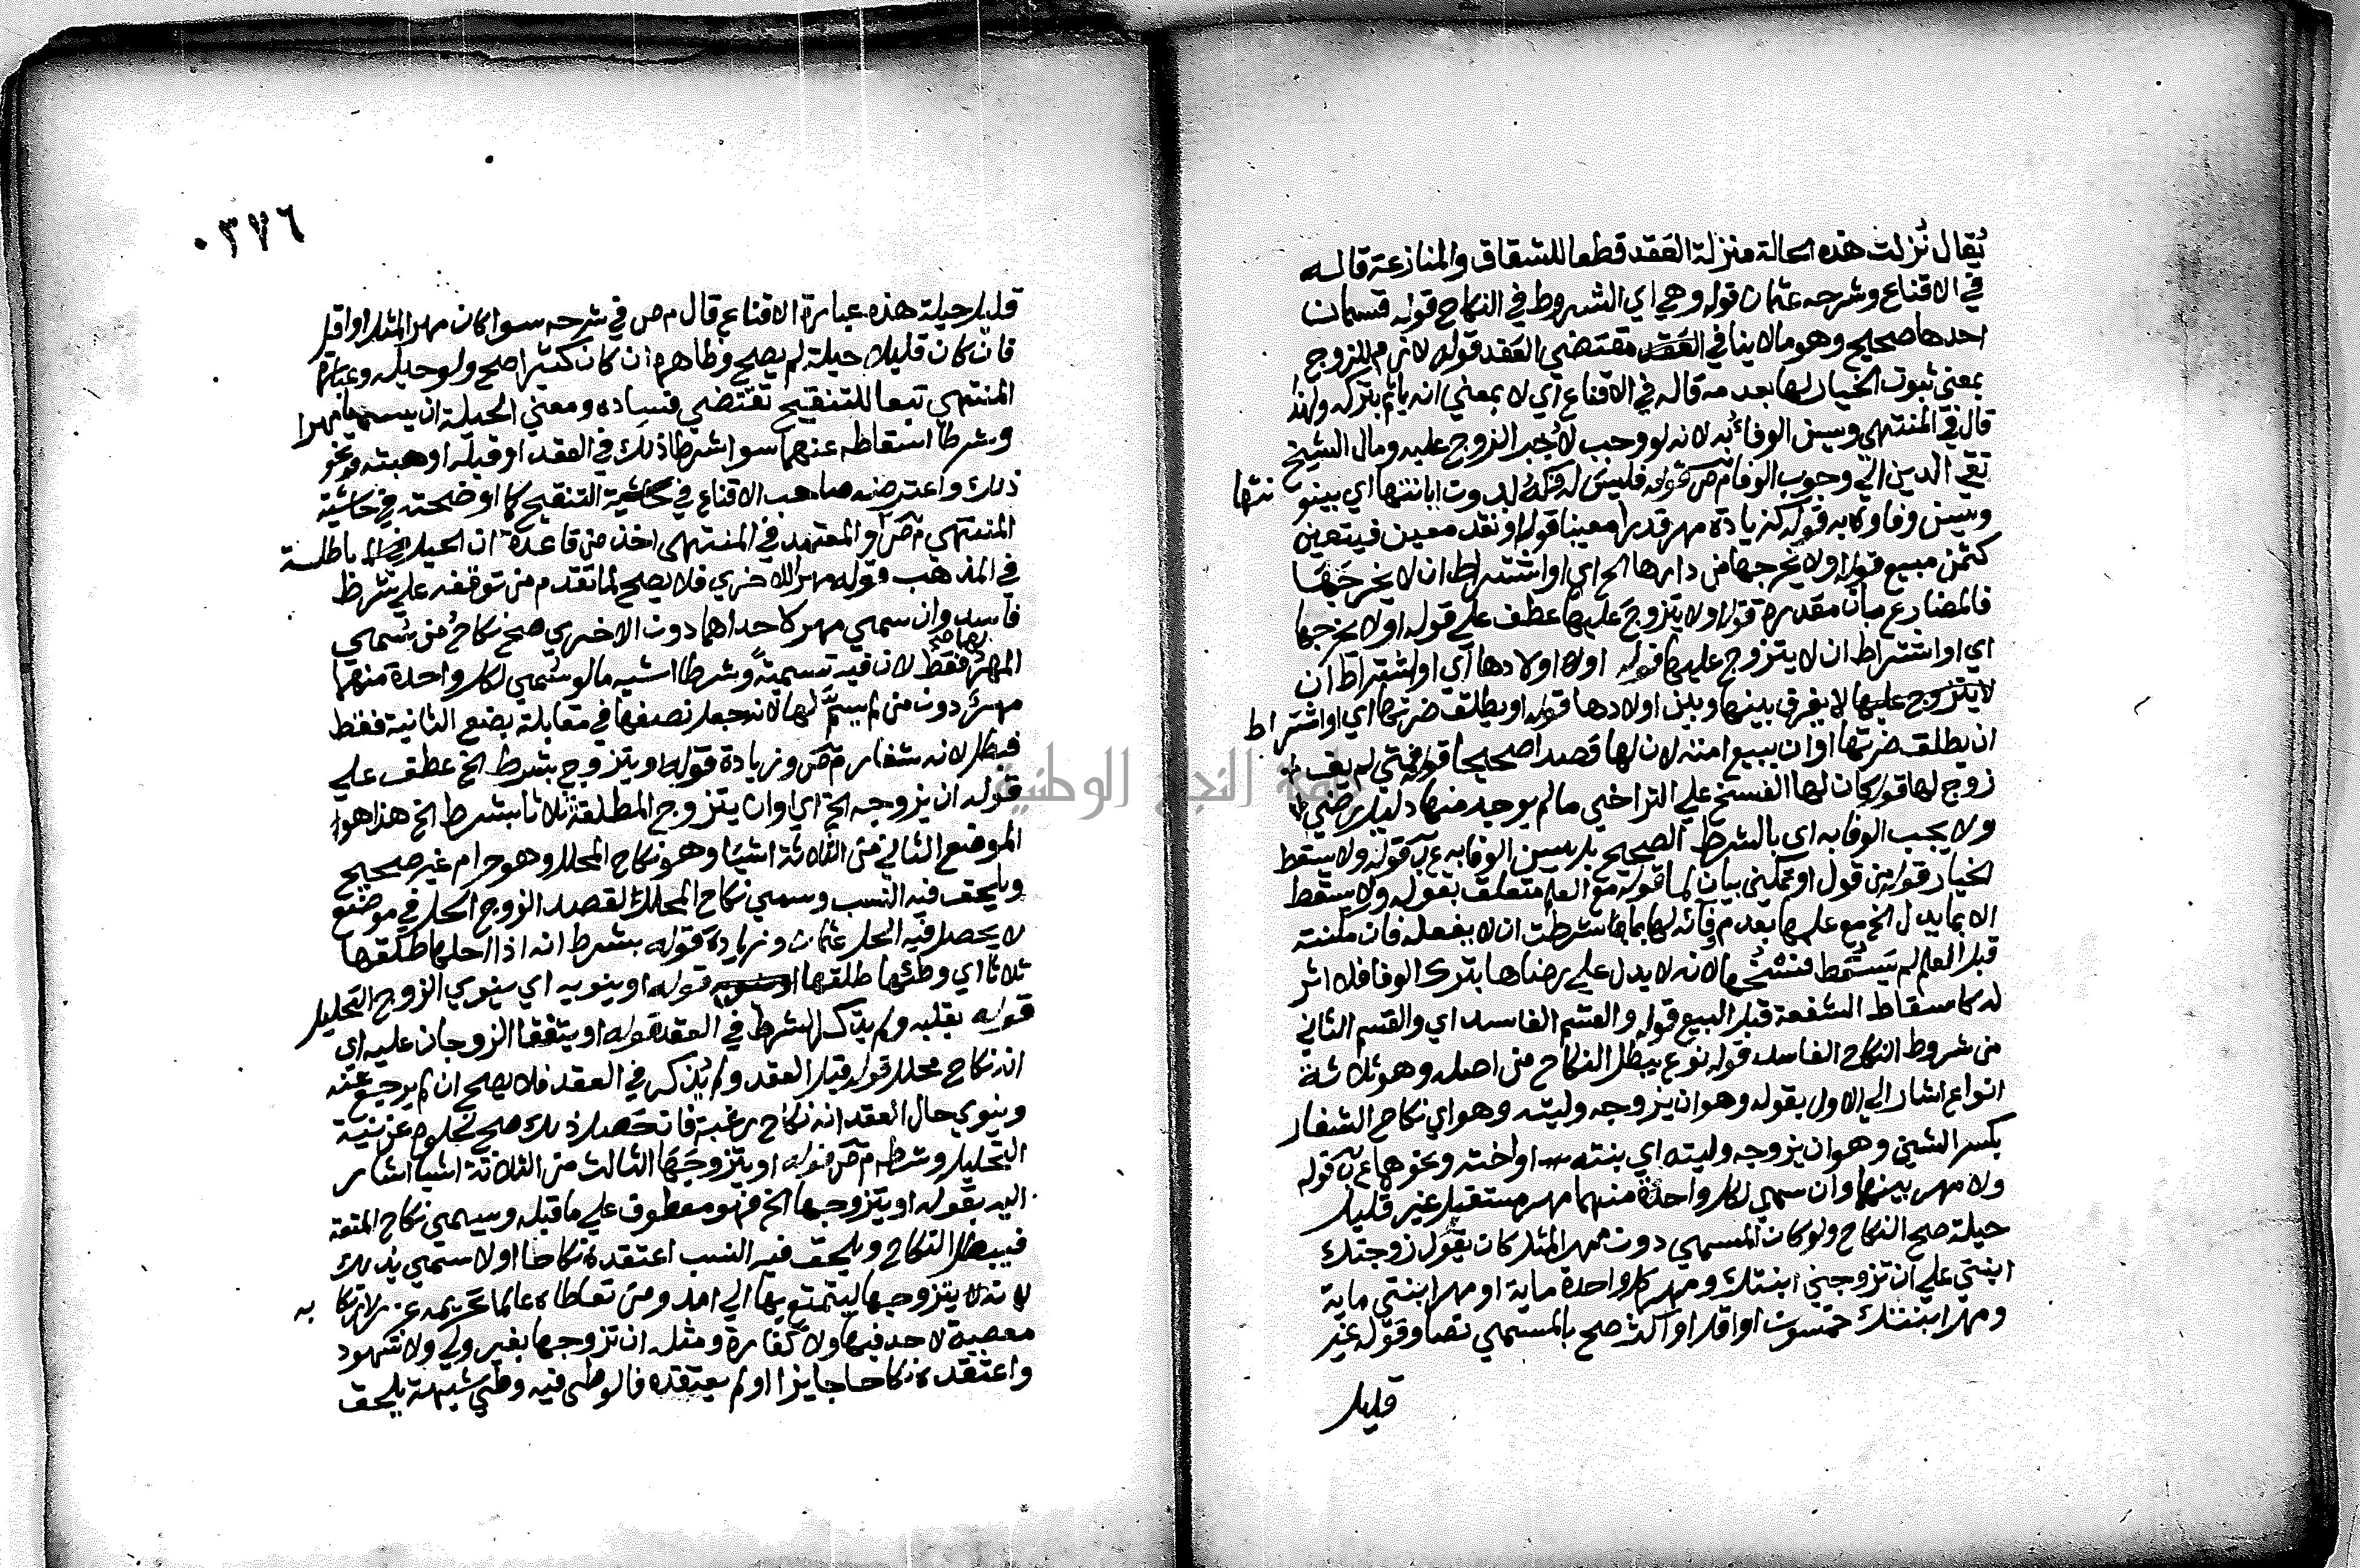 يُقال نُزلت هذه الحالة منزلة العَقد قطعا للشقاق والمنازعة قاله
في الاقناع وشرحه عثمان قوله وهي اي الشروط في النكاح قوله قسمان
احدها صحيح وهو ما لا ينافي العَقد مقتضي العَقد قوله لازم للزوج
بمعني ثبوت الخيار لها بعدمه قاله في الاقناع اي لا بمعني انه ياثم بتركه ولهذا
قال في المنتهي وسن الوفاء به لانه لو وجب لاُجبر الزوج عليه ومال الشيخ
تقي الدين الي وجوب الوفا م ص قوله فليس له فكه بدون ابانتها اي بينونتها
وسن وفاوه به قوله كزيادة مهر قدرا معينا قوله او نقد معين فيتعين
كثمن مبيع قوله او لا يخرجها من دارها الخ اي او اشتراط ان لا يخرجها
فالمضارع مبان مقدرة قوله او لا يتزوجَ عليها عطف علي قوله او لا يخرجها
اي او اشتراط ان لا يتزوج عليها قوله او لا اولادها اي او اشتراط ان
لا يتزوج عليها لا يفرق بينها وبين اولادها قوله او يطلق ضرتها اي او اشتراط
ان يطلق ضرتها او ان يبيع امته لان لها قصدا صحيحا قوله فمتي لم يف
زوج لها قوله كان لها الفسخ علي التراخي ما لم يوجد منها دليل رضي
ولا يجب الوفا به اي بالشرط الصحيح بل يسن الوفا به ع ب قوله ولا يسقط
الخيار قوله من قول او تمكين بيان لما قوله مع العلم متعلق بقوله ولا يسقط
الا بما يدل الخ مع علمها بعدم وفائه لها بما شرطت ان لا يفعله فان مكنته
قبل العلم لم يَسقُط فسْخُها لانه لا يدل علي رضاها بترك الوفا فلا اثر
له كاسقاط الشفعة قبل البيع قوله والقسم الفاسد اي والقسم الثاني
من شروط النكاح الفاسد قوله نوع يبطل النكاح من اصله وهو ثلاثة
انواع اشار الي الاول بقوله وهو ان يزوجه وليته وهو اي نكاح الشغار
بكسر الشين وهو ان يزوجه وليته اي بنته او اخته ونحوها ع ب قوله
ولا مهر بينهما وان سمي لكل واحدة منهما مهر مستقبل غير قليل
حيلة صح النكاح ولو كان المسمي دون مهر المثل كان يقول زوجتك
ابنتي علي ان تزوجني ابنتك ومهر كل واحدة ماية او مهر ابنتي ماية
ومهر ابنتك خمسون او اقل او اكثر صح بالمسمي نصا وقوله غير
قليل
٠٣٧٦
قليل حيلة هذه عبارة الاقناع قال م ص في شرحه سوا كان مهر المثل او اقل
فان كان قليلا حيلة لم يصح وظاهره ان كان كثيرا صح ولو حيلة وعبارة
المنتهي تبعا للتنقيح تقتضي فساده ومعني الحيلة ان يسميا مهرا
وشرط اسقاطه عنهما سوا اشرطا ذلك في العقد او قبله او هبته ونحو
ذلك واعترضه صاحب الاقناع في حاشية التنقيح كما اوضحته في حاشية
المنتهي م ص والمعتمد في المنتهي اخذ من قاعدة ان الحيل باطلة
في المذهب وقوله مهر اللاخري فلا يصح لما تقدم من توقفه علي شرط
فاسد وان سمي مهر لاحداهما دون الاخري صح نكاحُ من سُمي
المهرُ لها فقط لان فيه تسميةً وشرطا اشبه ما لو سُمي لكل واحدة منهما
مهرٌ دون من لم يسمَّ لها لانه جعل نصفها في مقابلة بضع الثانية فقط
فبطل لانه شغار م ص وزيادة قوله او يتزوج بشرط الخ عطف علي
قوله ان يزوجه الخ اي او ان يتزوج المطلقة ثلاثا بشرط الخ هذا هو
الموضع الثاني من الثلاثة اشيا وهو نكاح المحلل وهو حرام غير صحيح
ويلحق فيه النسب وسمي نكاح المحلل لقصد الزوج الحل في موضع
لا يحصل فيه الحل عثمان وزيادة قوله بشرط انه اذا احلها طلقها
ثلاثا اي وطئها طلقها قوله او ينويه اي ينوي الزوج التحليل
قوله بقلبه ولم يذكر الشرط في العقد قوله او يتفقا الزوجان عليه اي
انه نكاح محلل قوله قبل العقد ولم يُذكر في العقد فلا يصح ان لم يرجع عنه
وينوي حال العقد انه نكاح رغبة فان حصل ذلك صح لخلوه عن نية
التحليل وشرطه م ص قوله او يتزوجَها الثالث من الثلاثة اشيا اشار
اليه بقوله او يتزوجها الخ فهو معطوف علي ما قبله ويسمي نكاح المتعة
فيبطل النكاح ويلحق فيه النسب اعتقده نكاحا اولا سمي بذلك
لانه يتزوجها ليتمتع بها الي امد ومن تعاطاه عالما تحريمه عزر لارتكابه
معصية لا حد فيها ولا كفارة ومثله ان تزوجها بغير ولي ولا شهود
واعتقده نكاحا جايزا او لم يعتقده فالوطي فيه وطي شبهة يلحق
جامعة النجاح الوطنية